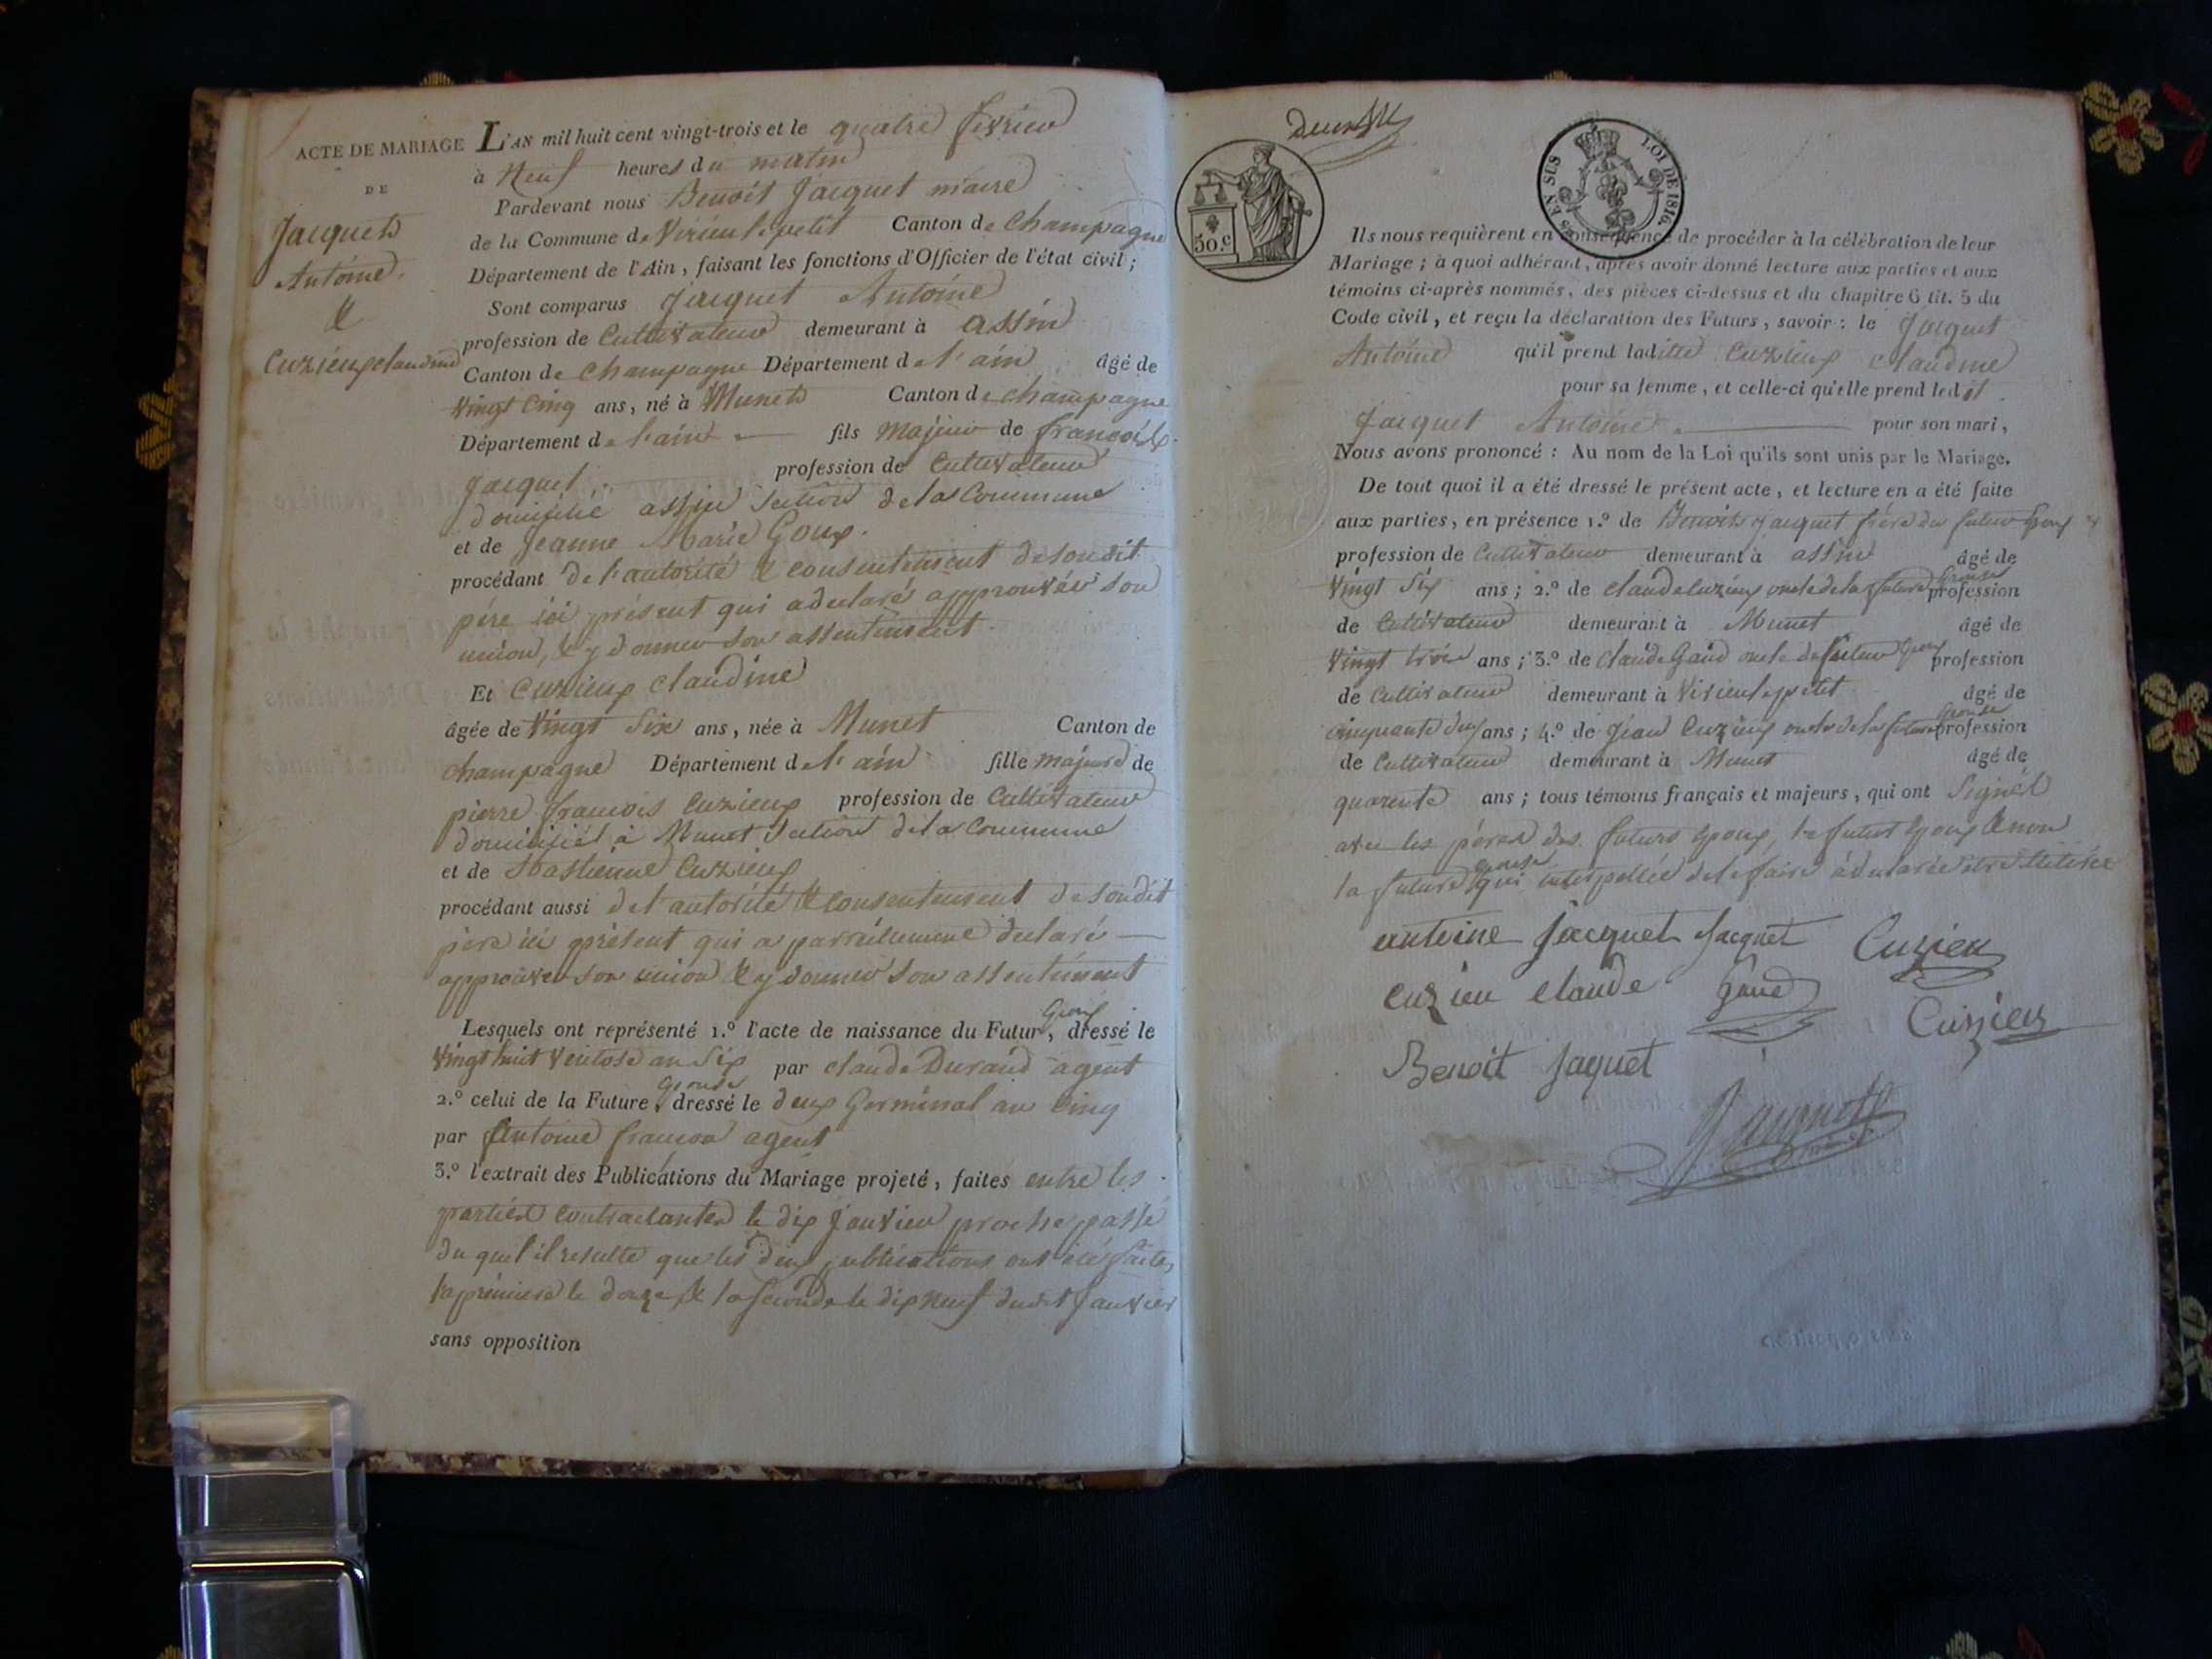 ACTE DE MARIAGE
DE
Jacquet
Antoine
&
Cuzieux claudine
L'AN mil huit cent vingt-trois et le quatre fevrier
à Neuf heures du matin
Pardevant nous Benoit Jacquet maire
de la Commune de Virieu le petit Canton de Champagne
Département de l'Ain, faisant les fonctions d'Officier de l'état civil;
Sont comparus Jacquet Antoine
profession de Cultivateur demeurant à assin
Canton de Champagne Département de l'ain âgé de
Vingt Cinq ans, né à Munet Canton de champagne
Département de l'ain fils majeur de francois
Jacquet profession de Cultivateur
domicilié assin section de la Commune
et de Jeanne Marie Goux
procédant de l'autorité & consentement de son dit
père ici présent qui a declaré approuver son
union, & y donner son assentiment
Et Cuzieux claudine
âgée de Vingt Six ans, née à Munet Canton de
champagne Département de l'ain fille majeure de
pierre francois Cuzieux profession de Cultivateur
domicilié à Munet Section de la Commune
et de Cuzieux
procédant aussi de l'autorité & consentement de son dit
père ici présent qui a pareillement declaré
approuver son union & y donner son assentiment
Lesquels ont représenté 1.º l'acte de naissance du Futur Epoux, dressé le
Vingt huit Ventose an Six par claude Durand agent
2.º celui de la Future Epouse, dressé le deux Germinal an Cinq
par Antoine agent
3.º l'extrait des Publications du Mariage projeté, faites entre les
parties contractantes le dix Janvier proche passé
du quel il resulte que les deux publications ont été faites,
la première le douze & la seconde le dix neuf dudit Janvier
sans opposition
50.c
EN SUS
LOI DE 1816.
Ils nous requièrent en conséquence de procéder à la célébration de leur
Mariage; à quoi adhérant, après avoir donné lecture aux parties et aux
témoins ci-après nommés, des pièces ci-dessus et du chapitre 6 tit. 5 du
Code civil, et reçu la déclaration des Futurs, savoir: le Jacquet
Antoine qu'il prend laditte Cuzieux claudine
pour sa femme, et celle-ci qu'elle prend ledit
Jacquet Antoine pour son mari,
Nous avons prononcé: Au nom de la Loi qu'ils sont unis par le Mariage.
De tout quoi il a été dressé le présent acte, et lecture en a été faite
aux parties, en présence 1.º de Benoit Jacquet frère du futur Epoux
profession de Cultivateur demeurant à assin âgé de
Vingt Six ans; 2.º de claude Cuzieux oncle de la future Epouse profession
de Cultivateur demeurant à Munet âgé de
Vingt trois ans; 3.º de claude Gaud oncle du futur Epoux profession
de Cultivateur demeurant à Virieu le petit âgé de
cinquante deux ans; 4.º de Jean Cuzieux oncle de la future Epouse profession
de Cultivateur demeurant à Munet âgé de
quarente ans; tous témoins français et majeurs, qui ont Signés
avec les pères des futurs Epoux, le futur Epoux & non
la future Epouse qui interpellée de le faire a declarée etre illitérée
antoine Jacquet Jacquet Cuzieu
Cuzieu claude Gaud
Cuzieu
Benoit Jaquet
Jacquet